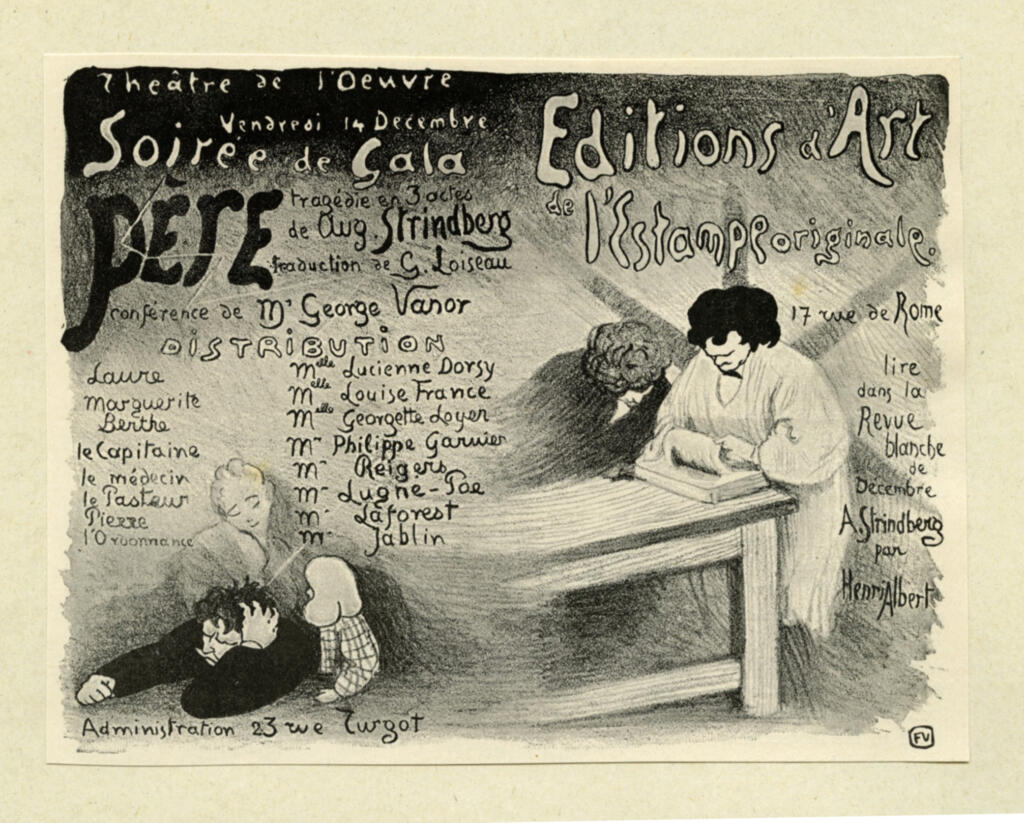 Theâtre de l'Oeuvre
Vendredi 14 Decembre
Soirée de Gala
PÈRE
tragédie en 3 actes
de Aug. Strindberg
traduction de G. Loiseau
conférence de Mr George Vanor
DISTRIBUTION
Laure Melle Lucienne Dorsy
Marguerite Melle Louise France
Berthe Melle Georgette Loyer
le Capitaine Mr Philippe Garnier
le médecin Mr Reigers
le Pasteur Mr Lugne-Poe
Pierre Mr Laforest
l'Ordonnance Mr Jablin
Administration 23 rue Turgot
Editions d'Art
de l'Estampe originale.
17 rue de Rome
lire
dans la
Revue
blanche
de
Décembre
A. Strindberg
par
Henri Albert
FV